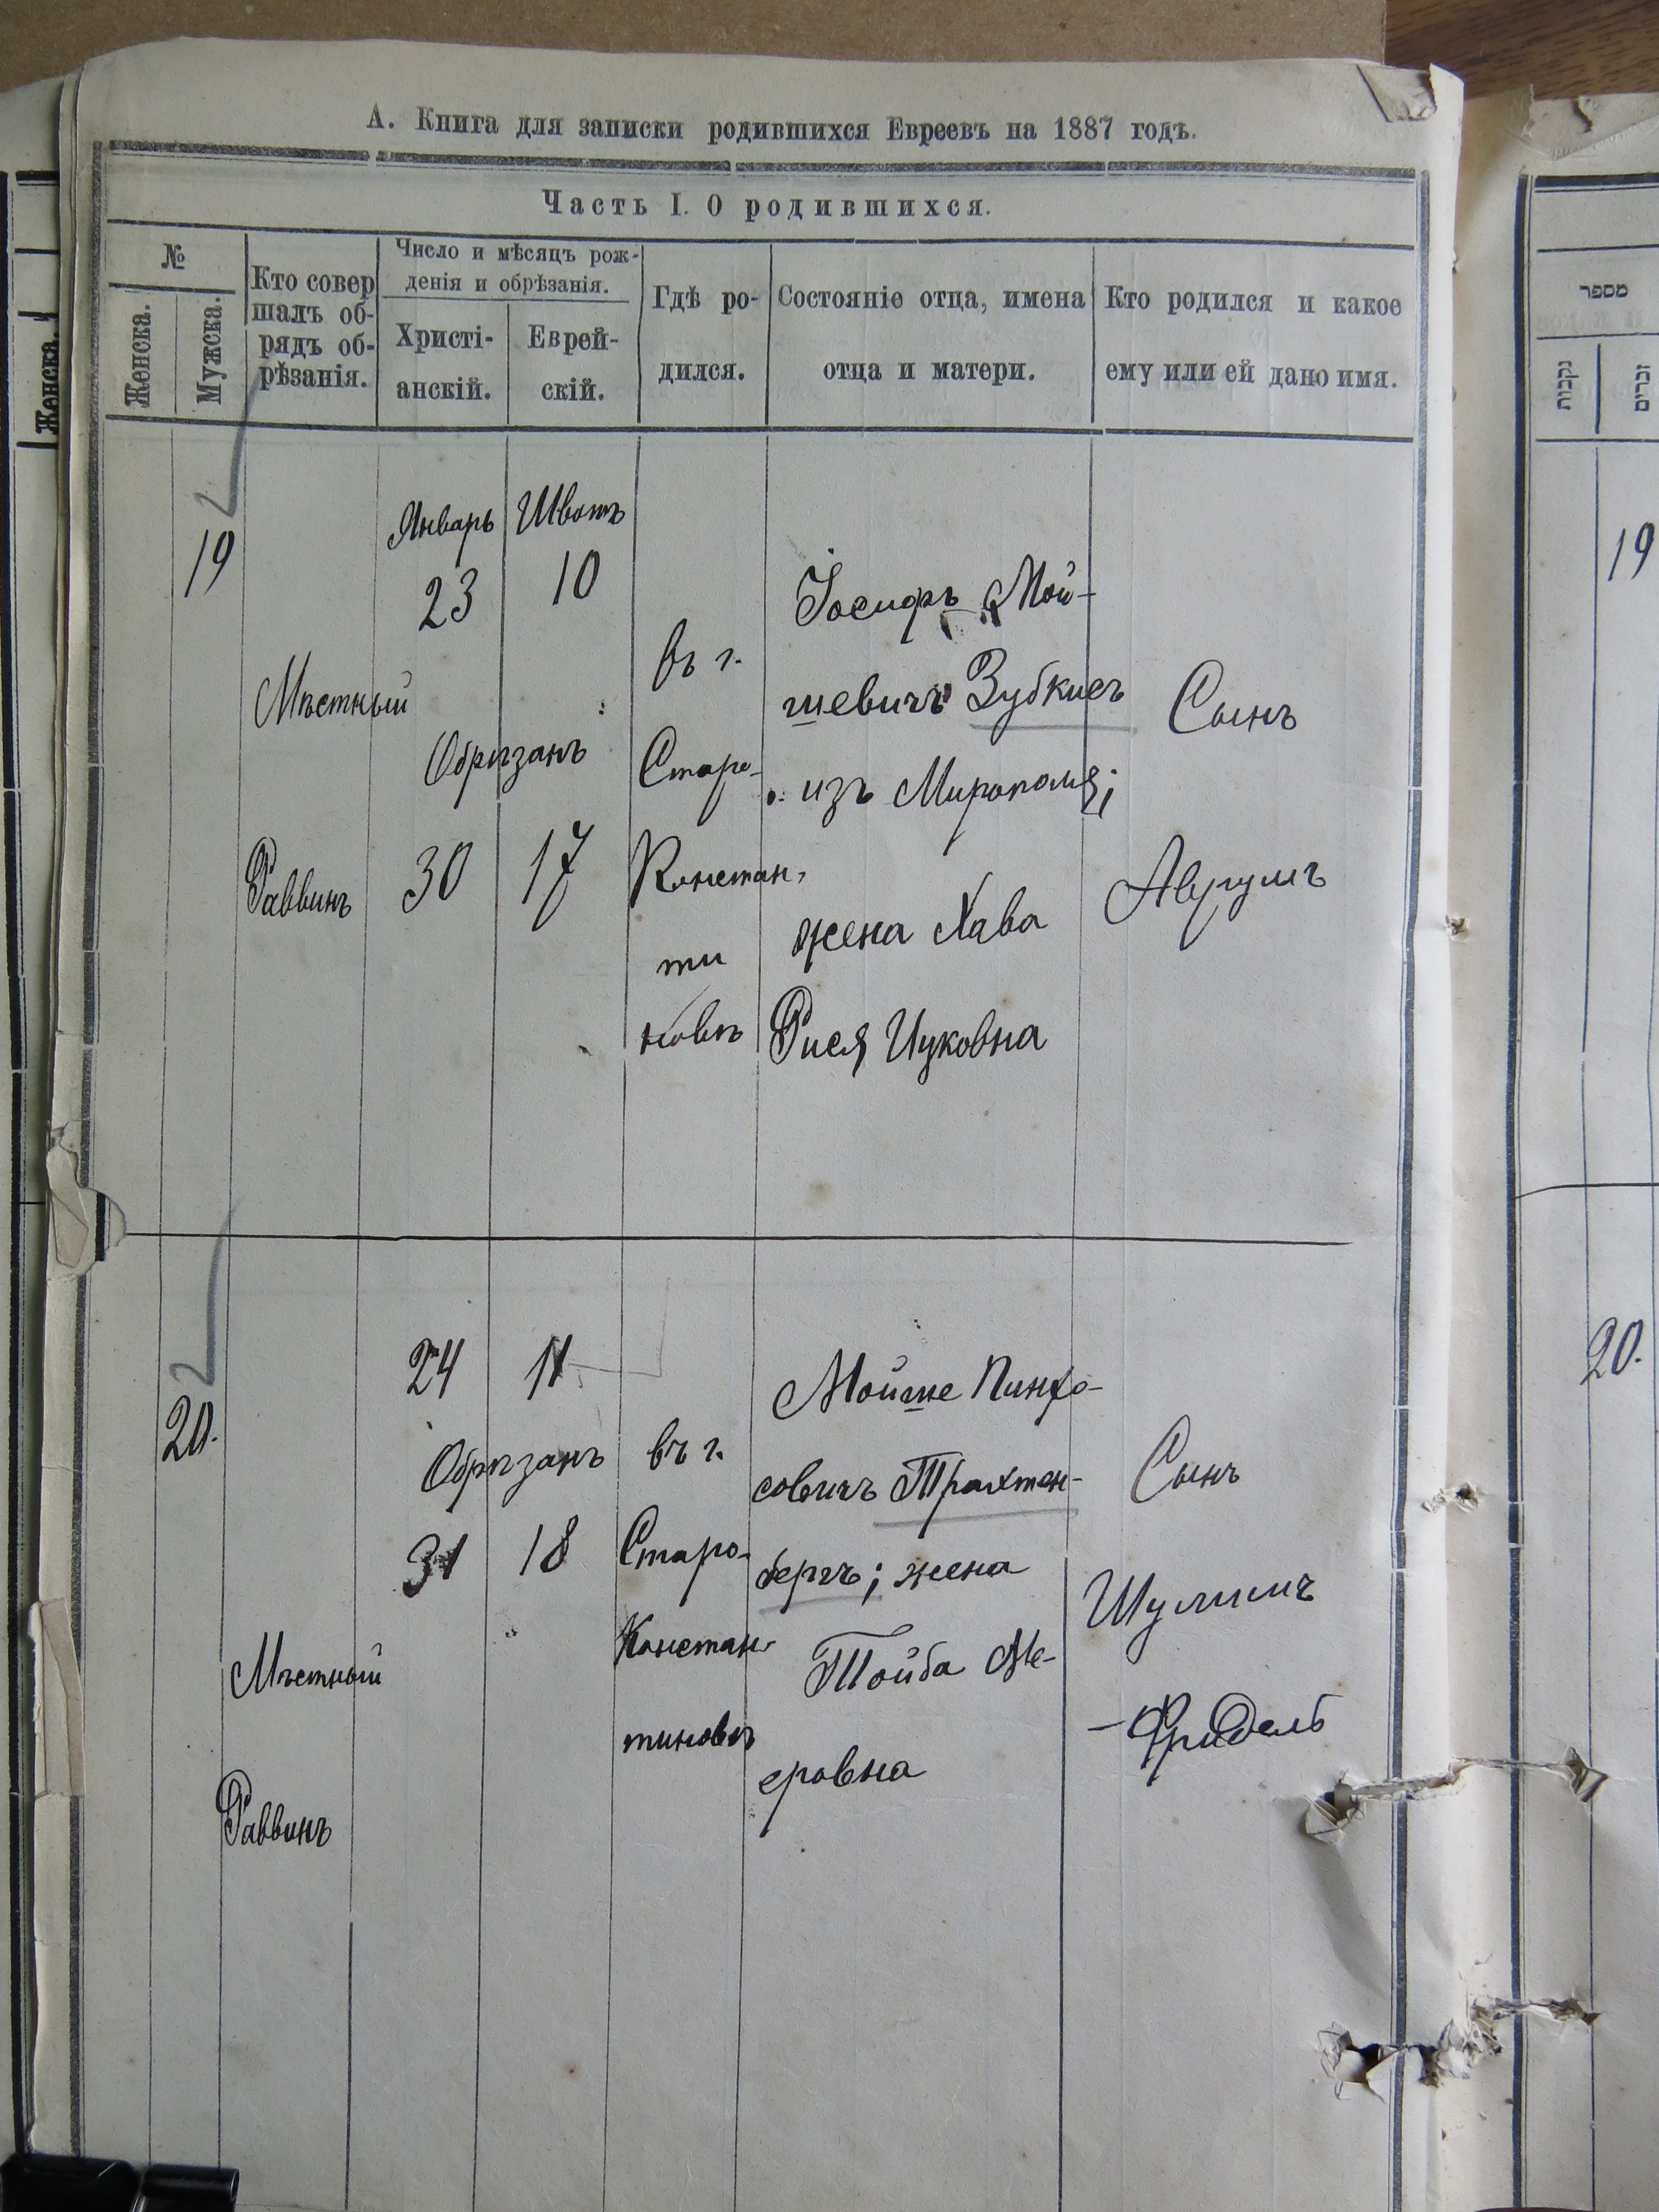 А. Книга для записки родившихся Евреевъ на 1887 годъ.
Часть I. О родившихся.
№
Женска.
Мужска.
Кто совер
шалъ об-
рядъ об-
рѣзанія.
Число и мѣсяцъ рож-
денія и обрѣзанія.
Христі-
анскій.
Еврей-
скій.
Гдѣ ро-
дился.
Состояніе отца, имена
отца и матери.
Кто родился и какое
ему или ей дано имя.
19
Мѣстный
Раввинъ
Январь
23
Швотъ
10
Обрѣзанъ
30
17
въ г.
Старо-
Констан-
ти
новѣ
Іосифъ Мой-
шевичъ Зубкисъ
изъ Мирополя;
жена Хава
Рися Ицковна
Сынъ
Аврумъ
20.
Мѣстный
Раввинъ
24
11
Обрѣзанъ
31
18
въ г.
Старо-
Констан-
тиновѣ
Мойше Пинхо-
совичъ Трахтен-
бергъ; жена
Тойба Ме-
еровна
Сынъ
Шулимъ
-Фридель
Женска.
מספר
נקבות
זכרים
19
20.